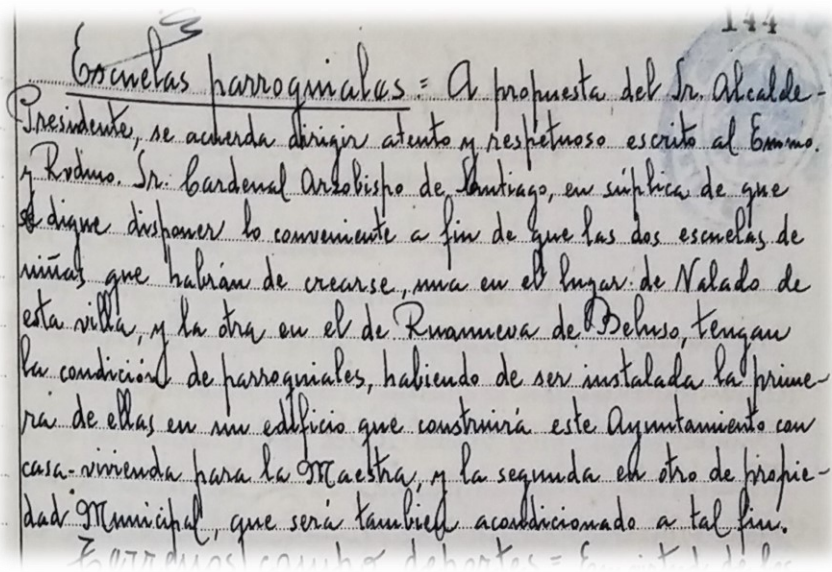 144
Escuelas parroquiales = A propuesta del Sr. Alcalde-
Presidente, se acuerda dirigir atento y respetuoso escrito al Emmo.
y Rvdmo. Sr. Cardenal Arzobispo de Santiago, en súplica de que
se digne disponer lo conveniente a fin de que las dos escuelas de
niñas que habrán de crearse, una en el lugar de Nalado de
esta villa, y la otra en el de Ruanueva de Beluso, tengan
la condición de parroquiales, habiendo de ser instalada la prime-
ra de ellas en un edificio que construirá este Ayuntamiento con
casa-vivienda para la Maestra, y la segunda en otro de propie-
dad Municipal, que será tambien acondicionado a tal fin.